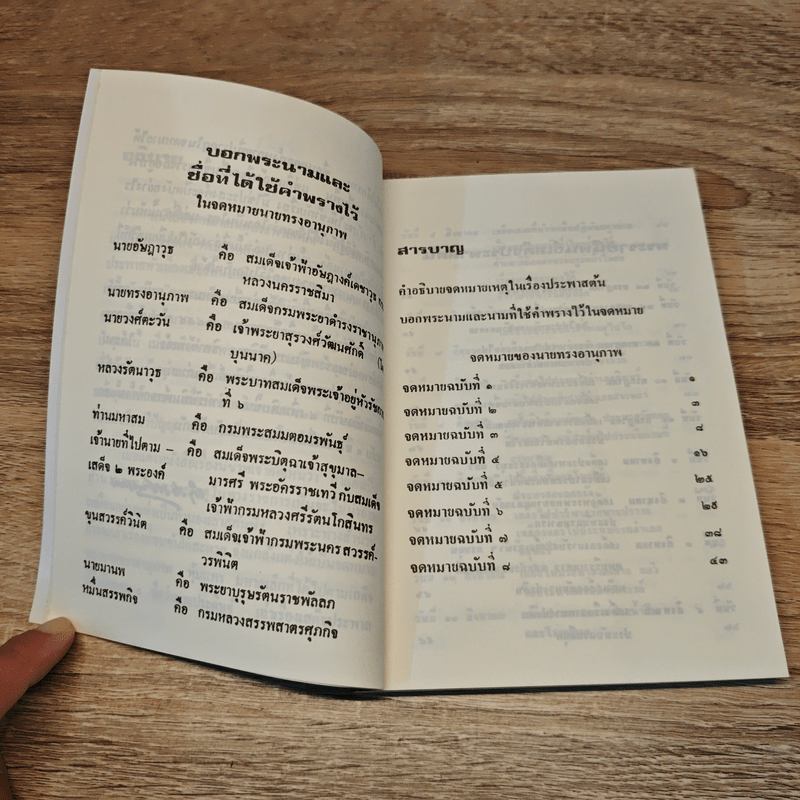 บอกพระนามและ
ชื่อที่ได้ใช้คำพรางไว้
ในจดหมายนายทรงอานุภาพ
นายอัษฎาวุธ คือ สมเด็จเจ้าฟ้าอัษฎางค์เดชาวุธ
หลวงนครราชสิมา
นายทรงอานุภาพ คือ สมเด็จกรมพระยาดำรงราชานุภาพ
นายวงศ์ตะวัน คือ เจ้าพระยาสุรวงศ์วัฒนศักดิ์
บุนนาค)
หลวงรัตนาวุธ คือ พระบาทสมเด็จพระเจ้าอยู่หัวรัช
ที่ ๖
ท่านมหาสม คือ กรมพระสมมตอมรพันธุ์
เจ้านายที่ไปตาม – คือ สมเด็จพระปิตุฉาเจ้าสุขุมาล–
เสด็จ ๒ พระองค์ มารศรี พระอัครราชเทวี กับสมเด็จ
เจ้าฟ้ากรมหลวงศรีรัตนโกสินทร
ขุนสวรรค์วินิต คือ สมเด็จเจ้าฟ้ากรมพระนครสวรรค์–
วรพินิต
นายมานพ คือ พระยาบุรุษรัตนราชพัลลภ
หมื่นสรรพกิจ คือ กรมหลวงสรรพสาตรศุภกิจ
สารบาญ
คำอธิบายจดหมายเหตุในเรื่องประพาสต้น
บอกพระนามและนามที่ใช้คำพรางไว้ในจดหมาย
จดหมายของนายทรงอานุภาพ
จดหมายฉบับที่ ๑ ๑
จดหมายฉบับที่ ๒ ๓
จดหมายฉบับที่ ๓ ๘
จดหมายฉบับที่ ๔ ๑๖
จดหมายฉบับที่ ๕ ๒๕
จดหมายฉบับที่ ๖ ๒๙
จดหมายฉบับที่ ๗ ๓๘
จดหมายฉบับที่ ๘ ๔๓